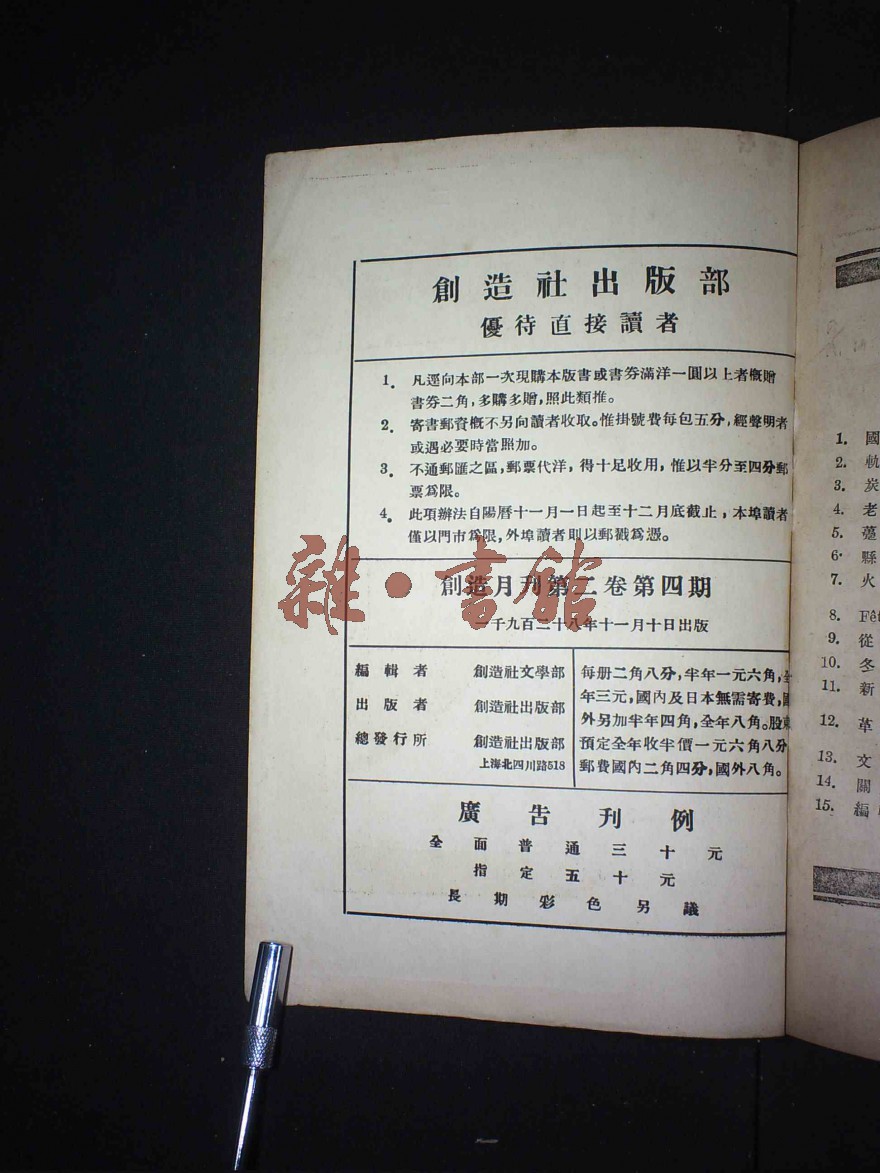 創造社出版部
優待直接讀者
1. 凡逕向本部一次現購本版書或書券滿洋一圓以上者概贈
書券二角，多購多贈，照此類推。
2. 寄書郵資概不另向讀者收取。惟掛號費每包五分，經聲明者
或遇必要時當照加。
3. 不通郵匯之區，郵票代洋，得十足收用，惟以半分至四分郵
票爲限。
4. 此項辦法自陽曆十一月一日起至十二月底截止，本埠讀者
僅以門市爲限，外埠讀者則以郵戳爲憑。
雜·書館
創造月刊第二卷第四期
一千九百二十八年十一月十日出版
編輯者 創造社文學部
出版者 創造社出版部
總發行所 創造社出版部
上海北四川路518
每册二角八分，半年一元六角，全
年三元，國內及日本無需寄費，國
外另加半年四角，全年八角。股東
預定全年收半價一元六角八分
郵費國內二角四分，國外八角。
廣告刊例
全面普通三十元
指定五十元
長期彩色另議
1. 國
2. 軌
3. 炭
4. 老
5.
6. 縣
7. 火
8. Fê
9. 從
10. 冬
11. 新
12. 革
13. 文
14. 關
15. 編